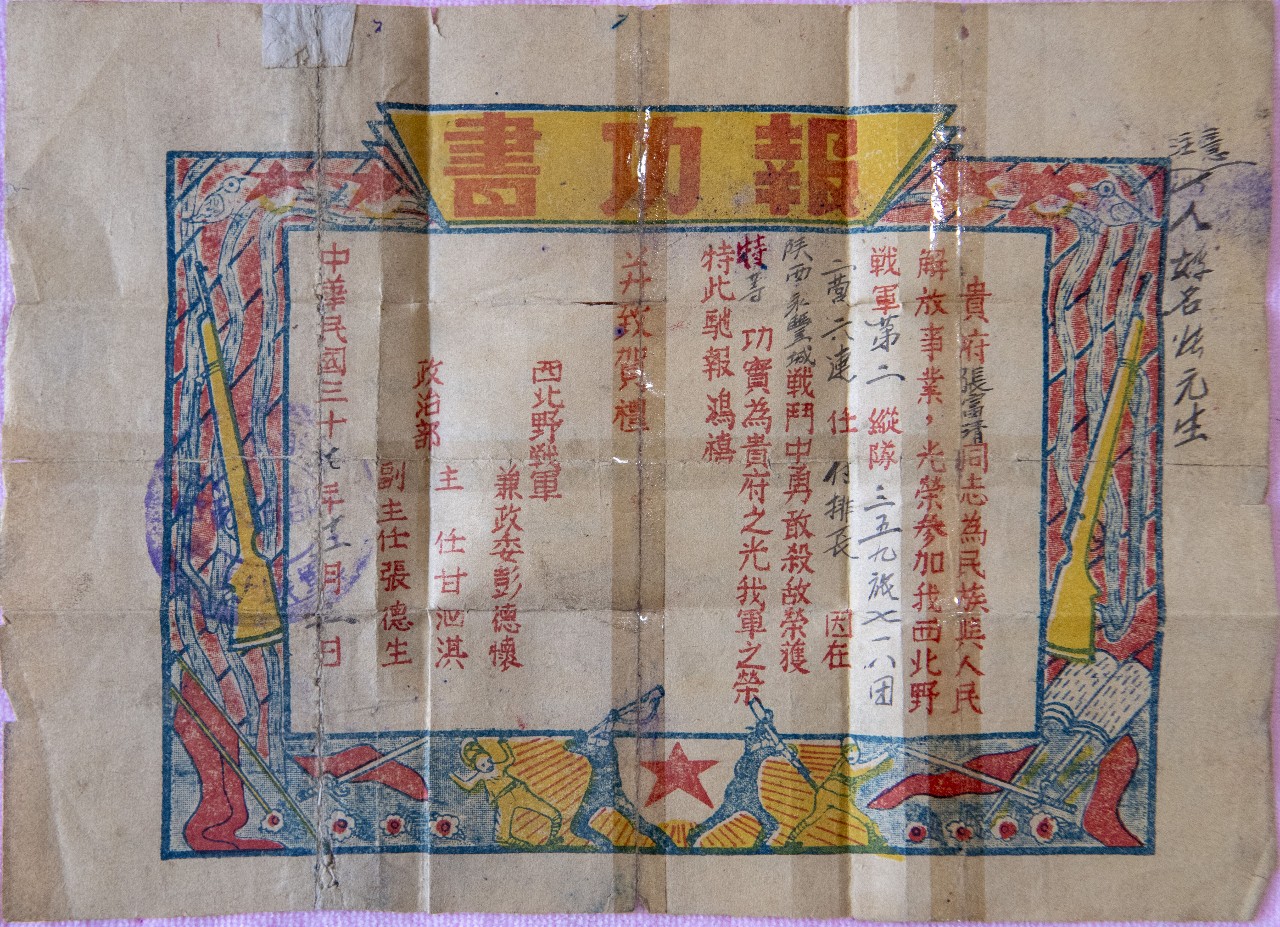 報功書
貴府張富清同志為民族與人民
解放事業，光榮參加我西北野
戰軍第二縱隊三五九旅七一八团
二营六連任付排長因在
陕西永豐城戰鬥中勇敢殺敌榮獲
特等功實為貴府之光我軍之榮
特此馳報鴻禧
并致賀禮
西北野戰軍
兼政委彭德懷
政治部
主任甘泗淇
副主任張德生
中華民國三十七年十二月日
注意
人姓名
元生